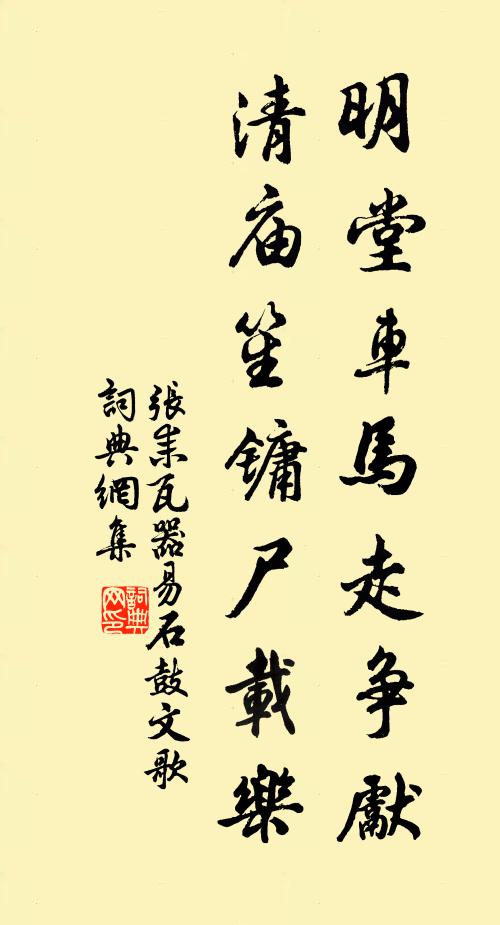 明堂車馬走争獻
清庙笙镛尸載樂
張耒瓦器易石鼓文歌
詞典網集
詞典网印